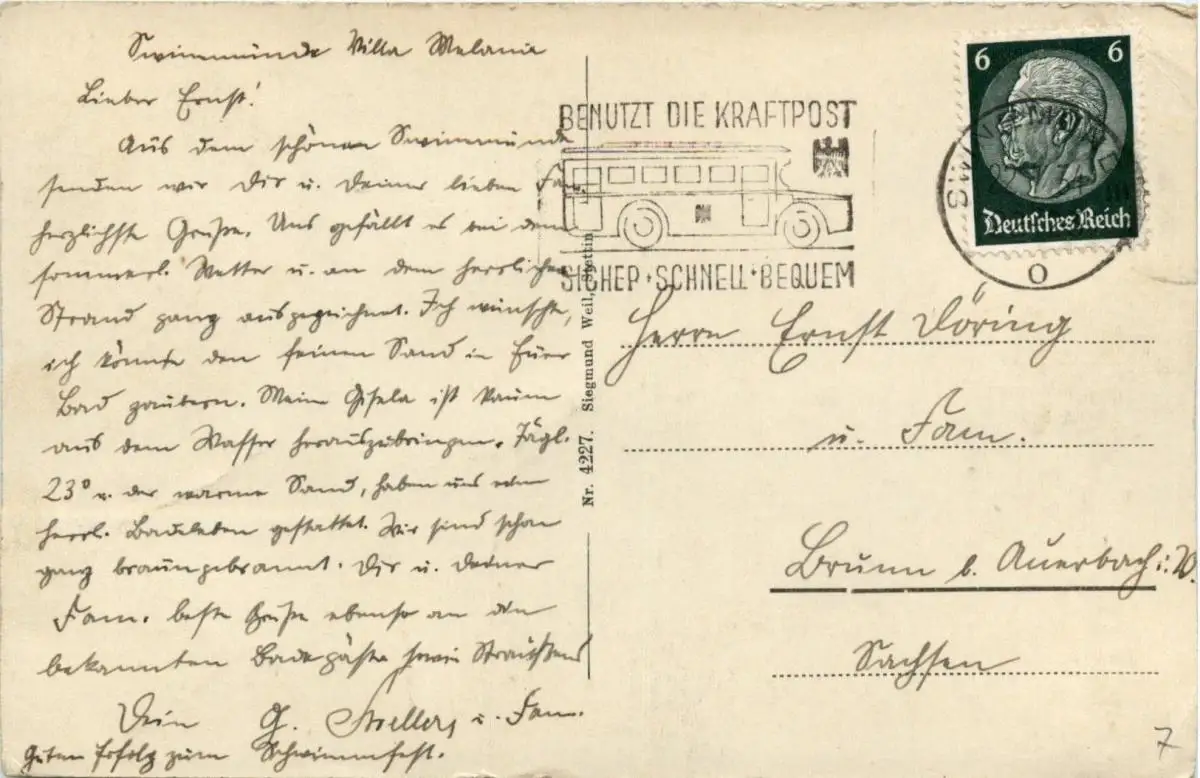 Swinemünde Villa Melanie
Lieber Ernst!
Aus dem schönen Swinemünde
senden wir Dir u. Deiner lieben Fam.
herzlichste Grüße. Uns gefällt es bei dem
sommerl. Wetter u. an dem herrlichen
Strand ganz ausgezeichnet. Ich wünschte,
ich könnte den feinen Sand in Euer
Bad zaubern. Mein Gisela ist kaum
aus dem Wasser herauszubringen. Tägl.
23° u. der warme Sand, haben uns ein
herrl. Badeleben gestattet. Wir sind schon
ganz braungebrannt. Dir u. Deiner
Fam. beste Grüße ebenso an die
bekannten Badegäste sowie
Dein G. u. Fam.
Guten Erfolg zum Schwimmfest.
Nr. 4227. Siegmund Weil, Stettin
BENUTZT DIE KRAFTPOST
SICHER · SCHNELL · BEQUEM
6 6
Deutsches Reich
SWINEMÜNDE
Herrn Ernst Döring
u. Fam.
Brunn b. Auerbach i. V.
Sachsen
7